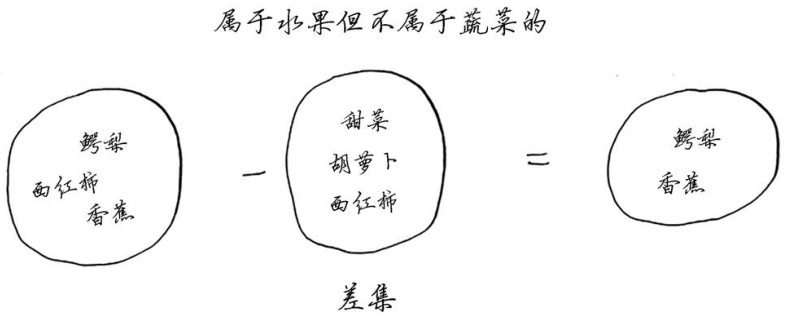 属于水果但不属于蔬菜的
鳄梨
西红柿
香蕉
-
甜菜
胡萝卜
西红柿
=
鳄梨
香蕉
差集